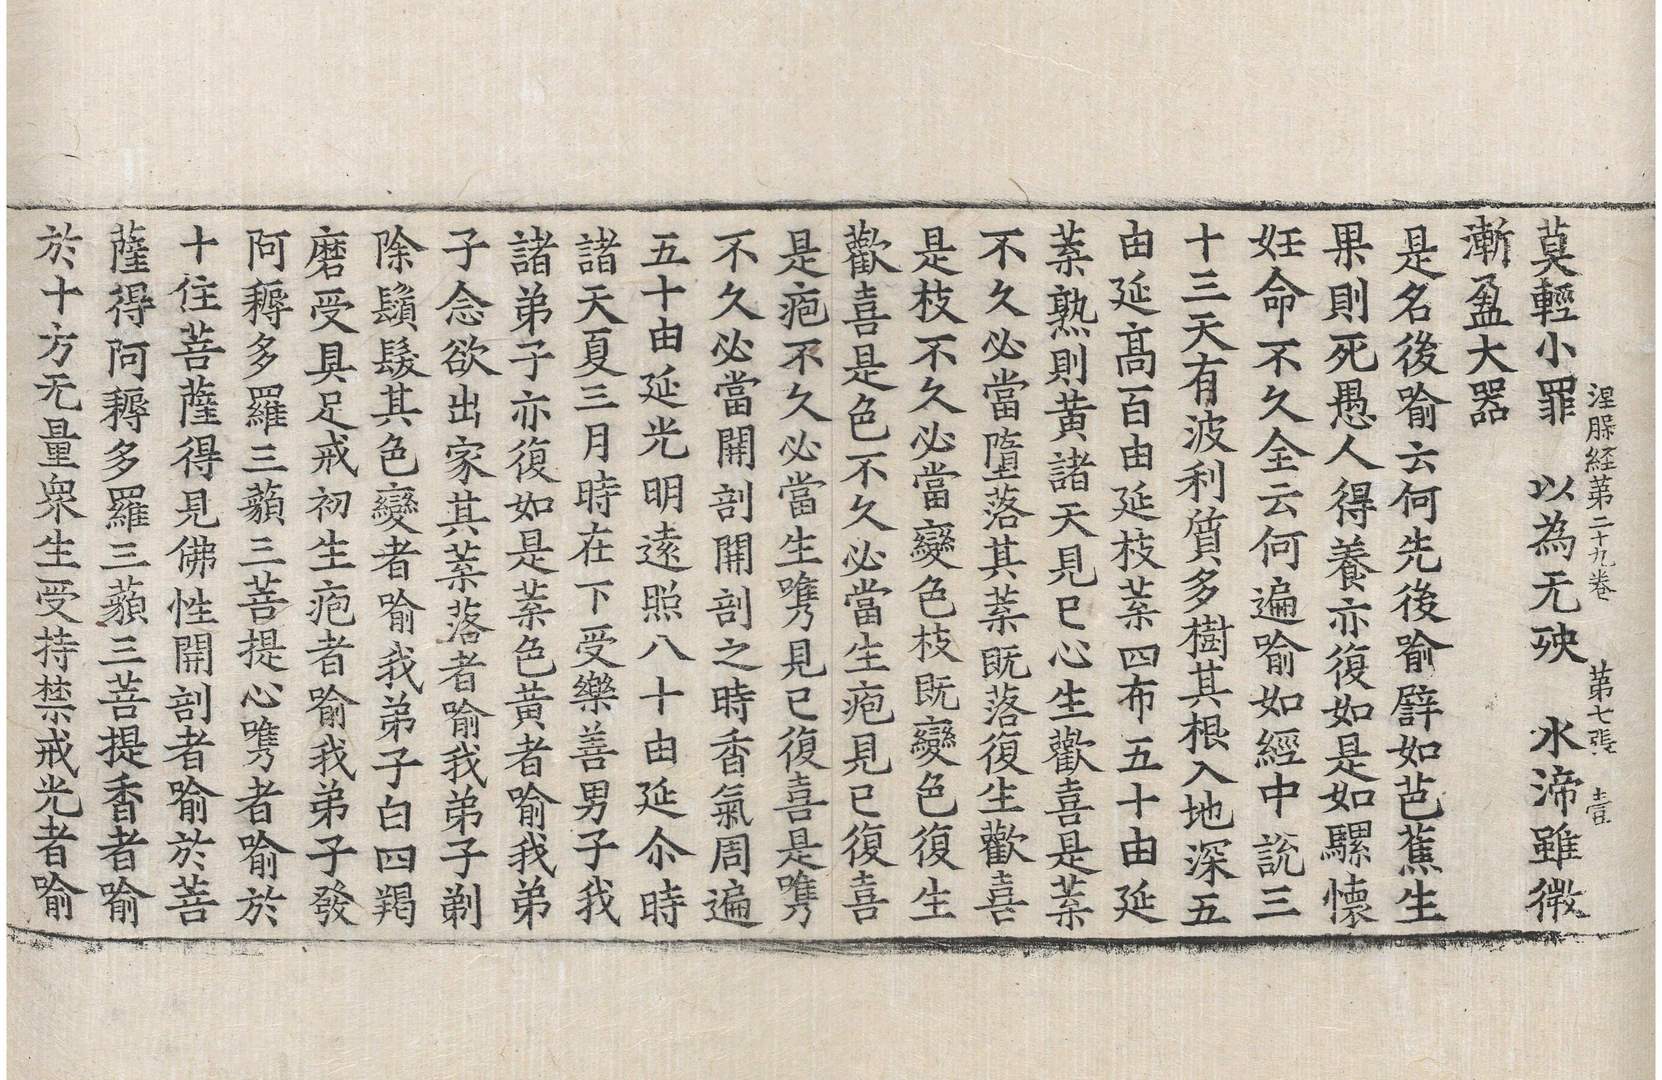 涅脲経第二十九卷 第七張 壹
莫輕小罪 以為无殃 水渧雖微
漸盈大器
是名後喻云何先後喻譬如芭蕉生
果則死愚人得養亦復如是如騾懷
妊命不久全云何遍喻如經中說三
十三天有波利質多樹其根入地深五
由延高百由延枝葉四布五十由延
葉熟則黃諸天見已心生歡喜是葉
不久必當墮落其葉既落復生歡喜
是枝不久必當變色枝既變色復生
歡喜是色不久必當生疱見已復喜
是疱不久必當生㗁見已復喜是㗁
不久必當開剖開剖之時香氣周遍
五十由延光明遠照八十由延尒時
諸天夏三月時在下受樂善男子我
諸弟子亦復如是葉色黃者喻我弟
子念欲出家其葉落者喻我弟子剃
除鬚髮其色變者喻我弟子白四羯
磨受具足戒初生疱者喻我弟子發
阿耨多羅三藐三菩提心㗁者喻於
十住菩薩得見佛性開剖者喻於菩
薩得阿耨多羅三藐三菩提香者喻
於十方无量衆生受持禁戒光者喻